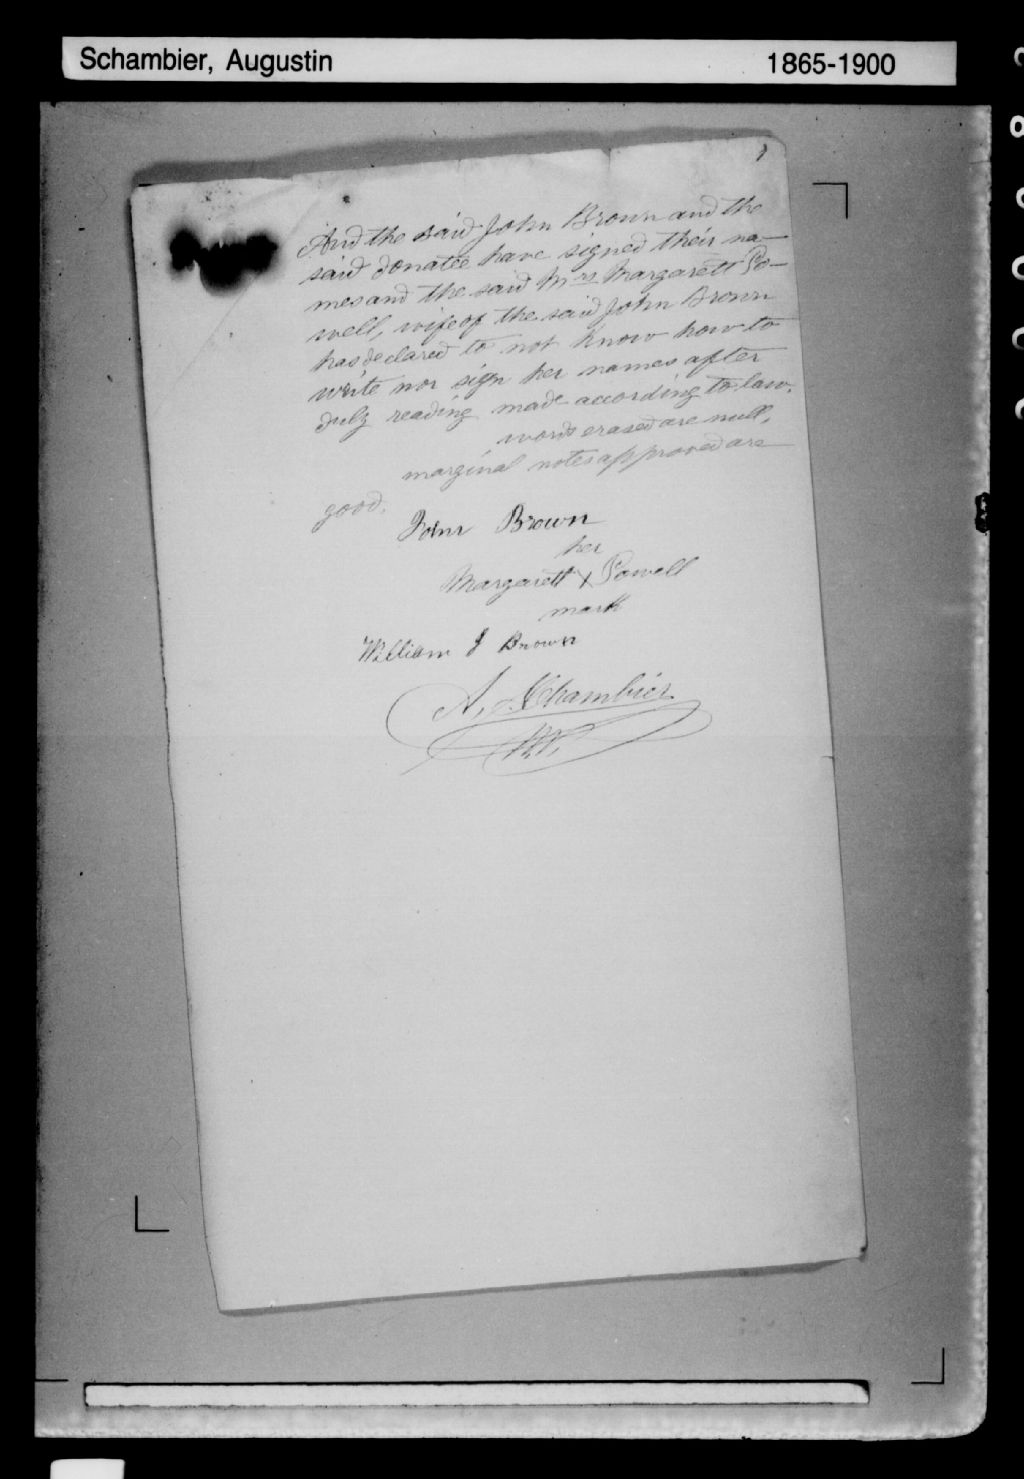 Schambier, Augustin 1865-1900
And the said John Brown and the
said donatee have signed their na-
mes and the said Mrs Margarett Po-
well, wife of the said John Brown
has declared to not know how to
write nor sign her names after
duly reading made according to law.
words erased are null,
marginal notes approved are
good.
John Brown
her
Margarett X Powell
mark
William J Brown
A. Schambier